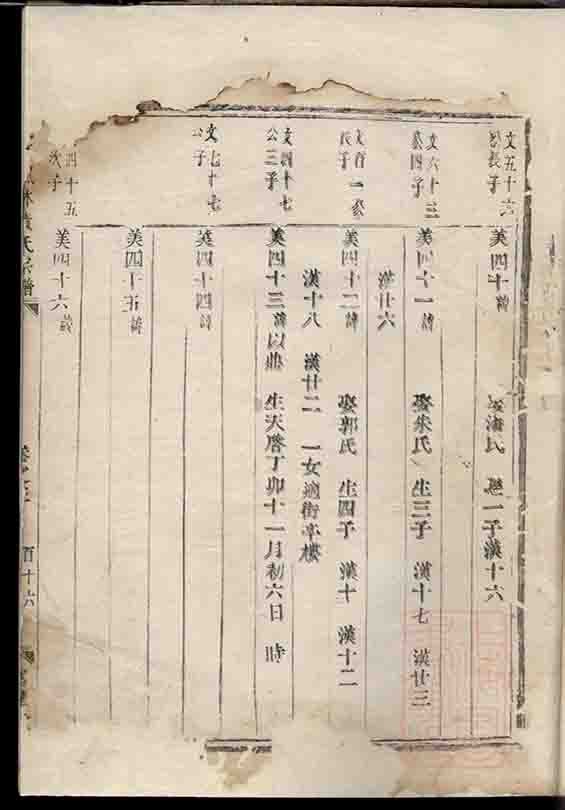 文五十六
公長子
美四十諱
娶潘氏 繼一子漢十六
文六十三
公四子
美四十一諱
娶朱氏 生三子 漢十七 漢廿三
漢廿六
文百一公
長子
美四十二諱
娶郭氏 生四子 漢十 漢十二
漢十八 漢廿二 一女適街亭樓
文四十七
公三子
美四十三諱以鼎 生天啓丁卯十一月初六日 時
文七十七
公子
美四十四諱
美四十五諱
四十五
次子
美四十六諱
林黃氏宗譜
百十六